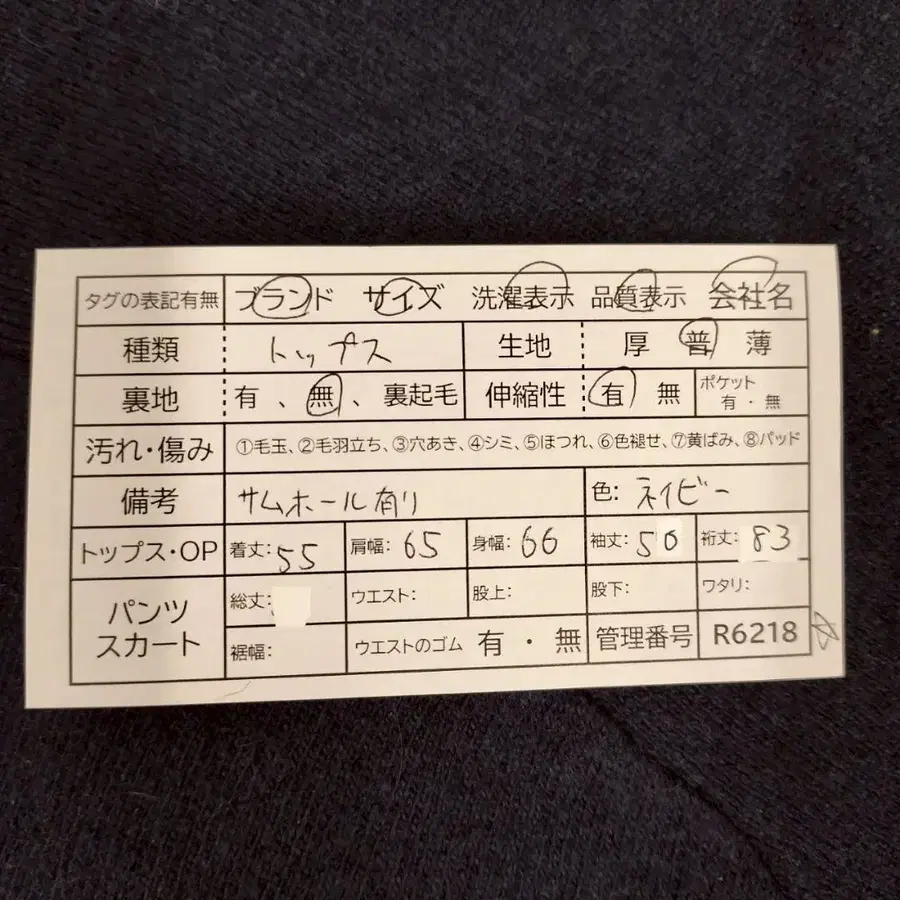 タグの表記有無 ブランド サイズ 洗濯表示 品質表示 会社名
種類 トップス 生地 厚 普 薄
裏地 有 、 無 、 裏起毛 伸縮性 有 無 ポケット 有 ・ 無
汚れ・傷み ①毛玉、②毛羽立ち、③穴あき、④シミ、⑤ほつれ、⑥色褪せ、⑦黄ばみ、⑧パッド
備考 サムホール有り 色: ネイビー
トップス・OP 着丈: 55 肩幅: 65 身幅: 66 袖丈: 50 裄丈: 83
パンツ スカート 総丈: ウエスト: 股上: 股下: ワタリ:
裾幅: ウエストのゴム 有 ・ 無 管理番号 R6218